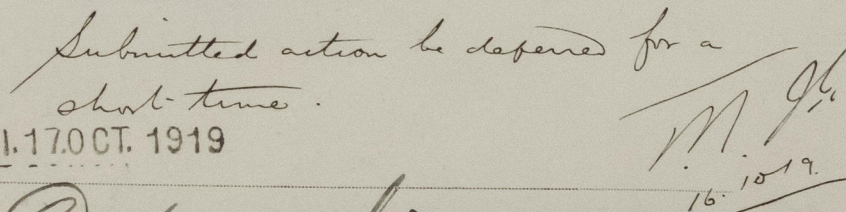 Submitted action be deferred for a
short time.
1.17.OCT. 1919
16.10.19.